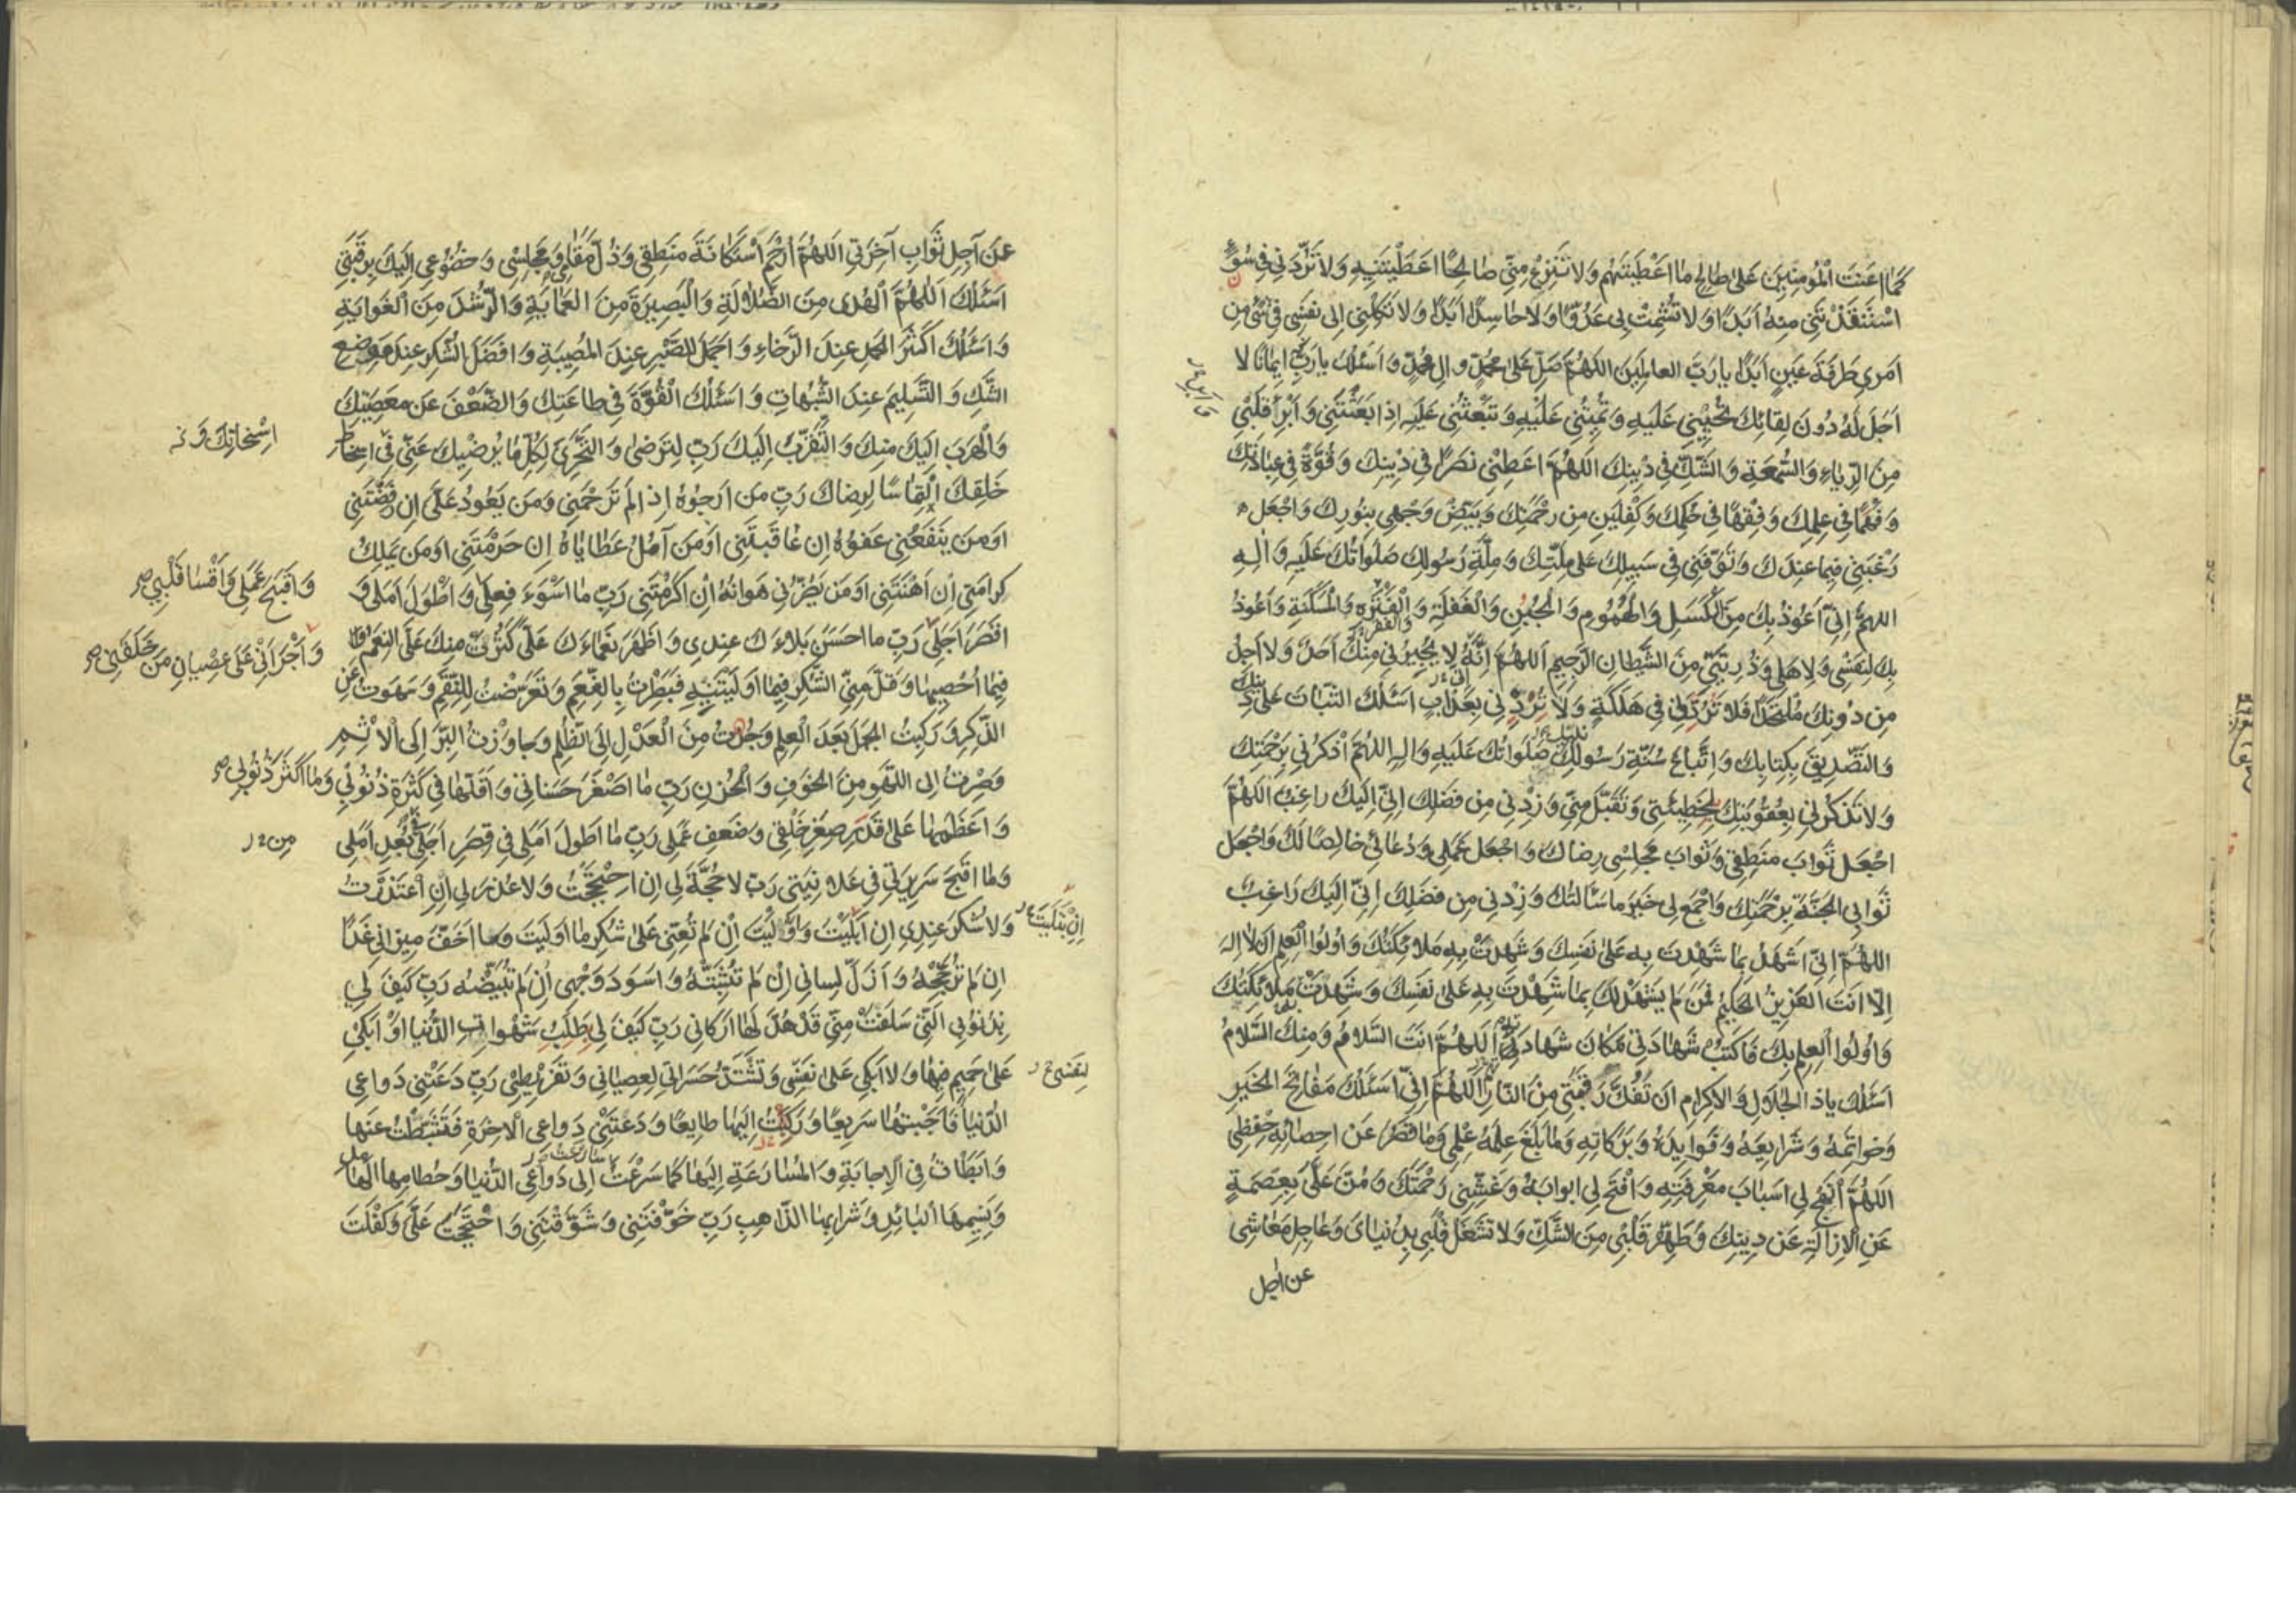 كَمَا اَعَنْتَ الْمُؤمِنينَ عَلى صالِحِ ما اَعْطَيتَهُم وَلا تَنْزِعْ مِنّي صالِحًا اعَطَيْتَنيهِ وَلا تَرُدَّني في سُوءٍ
اسْتَنْقَذْتَني مِنهُ اَبَدًا وَلا تُشْمِتْ بي عَدُوًّا وَلا حاسِدًا اَبَدًا وَلا تَكِلْني اِلى نَفسي في شَئٍ مِن
اَمري طَرفَةَ عَينٍ اَبَدًا يا رَبَّ العالَمينَ اللّهُمَّ صَلِّ عَلى مُحَمَّدٍ وَالِ مُحَمَّدٍ وَ اَسْئَلُكَ يا رَبِّ ايمانًا لا
اَجَلَ لَهُ دُونَ لِقائِكَ تُحْيِيني عَلَيهِ وَ تُميتُني عَلَيْهِ وَ تَبْعَثُني عَلَيهِ اِذا بَعَثْتَني وَ اَبْرِأْ قَلْبي
مِنَ الرِّياءِ وَ السُّمعَةِ وَ الشَّكِّ في دينِكَ اللّهُمَّ اَعطِني نَصرًا في دينِكَ وَ قُوَّةً في عِبادَتِكَ
وَ فَهمًا في عِلمِكَ وَ فِقْهًا في حُكمِكَ وَ كِفْلَينِ مِن رَحْمَتِكَ وَ بَيِّضْ وَجْهي بِنُورِكَ وَ اجْعَل
رَغْبَتي فيما عِندَكَ وَ تَوَفَّني في سَبيلِكَ عَلى مِلَّتِكَ وَ مِلَّةِ رَسُولِكَ صَلَواتُكَ عَلَيهِ وَ الِهِ
اللهُمَّ اِنّي اَعُوذُ بِكَ مِنَ الكَسَلِ وَ الْهُمُومِ وَ الْجُبْنِ وَ الْغَفلَةِ وَ الْفَتْرَهِ وَ المَسْكَنَةِ وَ اَعُوذُ
بِكَ لِنَفسي وَ لِاَهلي وَ ذُرِيَّتي مِنَ الشَّيطانِ الرَّجيمِ اَللّهُمَّ اِنَّهُ لا يُجيرُني مِنْكَ اَحَدٌ وَ لا اَجِدُ
مِن دُونِكَ مُلتَحَدًا فَلا تَرُدَّني في هَلَكَةٍ وَ لا تُرِدْني بِعَذابٍ اَسْئَلُكَ الثَّباتَ عَلى دينِكَ
وَ التَّصديقَ بِكِتابِكَ وَ اتِّباعَ سُنَّةِ رَسُولِكَ صَلَواتُكَ عَلَيهِ وَ الِهِ اللّهُمَّ اذْكُرني بِرَحْمَتِكَ
وَ لا تَذْكُرني بِعُقُوبَتِكَ لِخَطيئَتي وَ تَقَبَّل مِنّي وَ زِدْني مِن فَضلِكَ اِنّي اِلَيكَ راغِبٌ اللّهُمَّ
اجْعَل ثَوابَ مَنطِقي وَ ثَوابَ مَجلِسي رِضاكَ وَ اجْعَل عَمَلي وَ دُعائي خالِصًا لَكَ وَ اجْعَل
ثَوابي الجَنَّةَ بِرَحْمَتِكَ وَ اجْمَع لي خَيرَ ما سَاَلتُكَ وَ زِدْني مِن فَضلِكَ اِنّي اِلَيكَ راغِبٌ
اللهُمَّ اِنّي اَشهَدُ بِما شَهِدتَ بِهِ عَلى نَفسِكَ وَ شَهِدَتْ بِهِ مَلائِكَتُكَ وَ اُولُوا الْعِلمِ اَن لا اِلهَ
اِلّا اَنتَ العَزيزُ الحَكيمُ فَمَن لَم يَشهَدْ لَكَ بِما شَهِدْتَ بِهِ عَلى نَفسِكَ وَ شَهِدَتْ مَلائِكَتُكَ
وَ اُولُوا العِلمِ بِكَ فَاكتُبْ شَهادَتي مَكانَ شَهادَتِهِ اَللّهُمَّ اَنتَ السَّلامُ وَ مِنكَ السَّلامُ
اَسئَلُكَ يا ذا الجَلالِ وَ الاِكرامِ اَن تَفُكَّ رَقَبَتي مِنَ النّارِ اَللّهُمَّ اِنّي اَسئَلُكَ مَفاتِحَ الخَيرِ
وَ خَواتِمَهُ وَ شَرايِعَهُ وَ فَوايِدَهُ وَ بَرَكاتِهِ وَ ما بَلَغَ عِلمُهُ عِلمي وَ ما قَصُرَ عَن اِحصائِهِ حِفْظي
اَللهُمَّ اَنهِج لي اَسبابَ مَعْرِفَتِهِ وَ افْتَح لي اَبوابَهُ وَ غَشِّني رَحْمَتَكَ وَ مُنَّ عَلَيَّ بِعِصمَةٍ
عَنِ الاِزالَةِ عَن دينِكَ وَ طَهِّر قَلْبي مِنَ الشَّكِّ وَ لا تَشغَل قَلْبي بِدُنيايَ وَ عاجِلِ مَعاشي
عن اجل
عَن آجِلِ ثَوابِ آخِرَتي اَللهُمَّ ارْحَم اسْتَكانَةَ مَنطِقي وَ ذُلَّ مَقامي وَ مَجلِسي وَ خُضُوعي اِلَيكَ بِرَقَبَتي
اَسئَلُكَ اَللّهُمَّ الهُدى مِنَ الضَّلالَةِ وَ الْبَصيرَةَ مِنَ العَمايَةِ وَ الرُّشْدَ مِنَ الغَوايَةِ
وَ اَسئَلُكَ اَكثَرَ الحَمدِ عِندَ الرَّخاءِ وَ اَجمَلَ الصَّبرِ عِندَ المُصيبَةِ وَ اَفضَلَ الشُّكرِ عِندَ مَوضِعِ
الشَّكِّ وَ التَّسليمَ عِندَ الشُّبُهاتِ وَ اَسئَلُكَ القُوَّةَ في طاعَتِكَ وَ الضَّعْفَ عَن مَعصِيَتِكَ
وَ الهَرَبَ اِلَيكَ مِنكَ وَ التَّقَرُّبَ اِلَيكَ رَبِّ لِتَرضى وَ التَّحَرِّيَ لِكُلِّ ما يُرضيكَ عَنّي في اِسخاطِ
اِسْخاتِكَ وَ
خَلقِكَ اِلتِماسًا لِرِضاكَ رَبِّ مَن اَرجُوهُ اِذ لَم تَرْحَمني وَ مَن يَعُودُ عَلَيَّ اِن رَفَضْتَني
اَوْ مَن يَنفَعُني عَفوُهُ اِن عاقَبتَني اَوْ مَن آمُلُ عَطاياهُ اِن حَرَمْتَني اَوْ مَن يَملِكُ
كَرامَتي اِن اَهَنْتَني اَوْ مَن يَضُرُّني هَوانُهُ اِن اَكرَمْتَني رَبِّ ما اَسْوَءَ فِعلي وَ
وَ اَقبَحَ عَمَلي وَ اَقْسا قَلْبي صح
اَطْوَلَ اَمَلي وَ
اَقصَرَ اَجَلي رَبِّ ما اَحسَنَ بَلاءَكَ عِندي وَ اَظهَرَ نَعماءَكَ عَلَيَّ كَثُرَتْ مِنكَ عَلَيَّ النِعَمُ
وَ اَجْرَاَني عَلى عِصيانِ مَن خَلَقَني صح
فَما اُحصيها وَ قَلَّ مِنّي الشُّكرُ فيما اَولَيتَنيهِ فَبَطِرتُ بِالنِّعَمِ وَ تَعَرَّضتُ لِلنِّقَمِ وَ سَهَوتُ عَنِ
الذِّكرِ وَ رَكِبتُ الجَهلَ بَعدَ العِلمِ وَ جُزتُ مِنَ الْعَدلِ اِلَى الظُّلمِ وَ جاوَزتُ البِرَّ اِلَى الاِثمِ
وَ صِرتُ اِلى اللَّهوِ مِنَ الخَوفِ وَ الْحُزنِ رَبِّ ما اَصغَرَ حَسَناتي وَ اَقَلَّها في كَثرَةِ ذُنُوبي
وَ ما اَكثَرَ ذُنُوبي صح
وَ اَعظَمَها عَلى قَدرِ صِغَرِ خَلْقي وَ ضَعفِ عَمَلي رَبِّ ما اَطوَلَ اَمَلي في قِصَرِ اَجَلي في بُعدِ اَمَلي
مِن
وَ ما اَقبَحَ سَريرَتي في عَلانِيَتي رَبِّ لا حُجَّةَ لي اِن احْتَجَجْتُ وَ لا عُذرَ لي اِنِ اعْتَذَرتُ
وَ لا شُكرَ عِندي اِن اَبلَيْتَ وَ اَوْلَيْتَ اِن لَم تُعِنّي عَلى شُكرِ ما اَولَيتَ وَ ما اَخَفَّ ميزاني غَدًا
اِن لَم تُرَجِّحْهُ وَ اَزَلَّ لِساني اِن لَم تُثَبِّتْهُ وَ اَسوَدَ وَجْهي اِن لَم تُبَيِّضْهُ رَبِّ كَيفَ لي
بِذُنُوبي الَّتي سَلَفَتْ مِنّي قَد هُدَّ لَها اَركاني رَبِّ كَيفَ لي بِطَلَبِ شَهَواتِ الدُّنيا اَوْ اَبكي
عَلى حَميمٍ فيها وَ لا اَبكي عَلى نَفسي وَ تَشتَدُّ حَسَراتي لِعِصياني وَ تَفريطي رَبِّ دَعَتْني دَواعي
لِنَفسي
الدُّنيا فَاَجَبْتُها سَريعًا وَ رَكَنتُ اِلَيها طايِعًا وَ دَعَتْني دَواعي الاخِرَةِ فَتَثَبَّطتُ عَنها
وَ اَبطَأتُ في الاِجابَةِ وَ المُسارَعَةِ اِلَيها كَما سَرَعْتُ اِلى دَواعي الدُّنيا وَ حُطامِها الهامِدِ
وَ نَسيمِها البائِدِ وَ شَرابِها الذّاهِبِ رَبِّ خَوَّفْتَني وَ شَوَّقْتَني وَ احْتَجَجْتَ عَلَيَّ وَ كَفَلْتَ